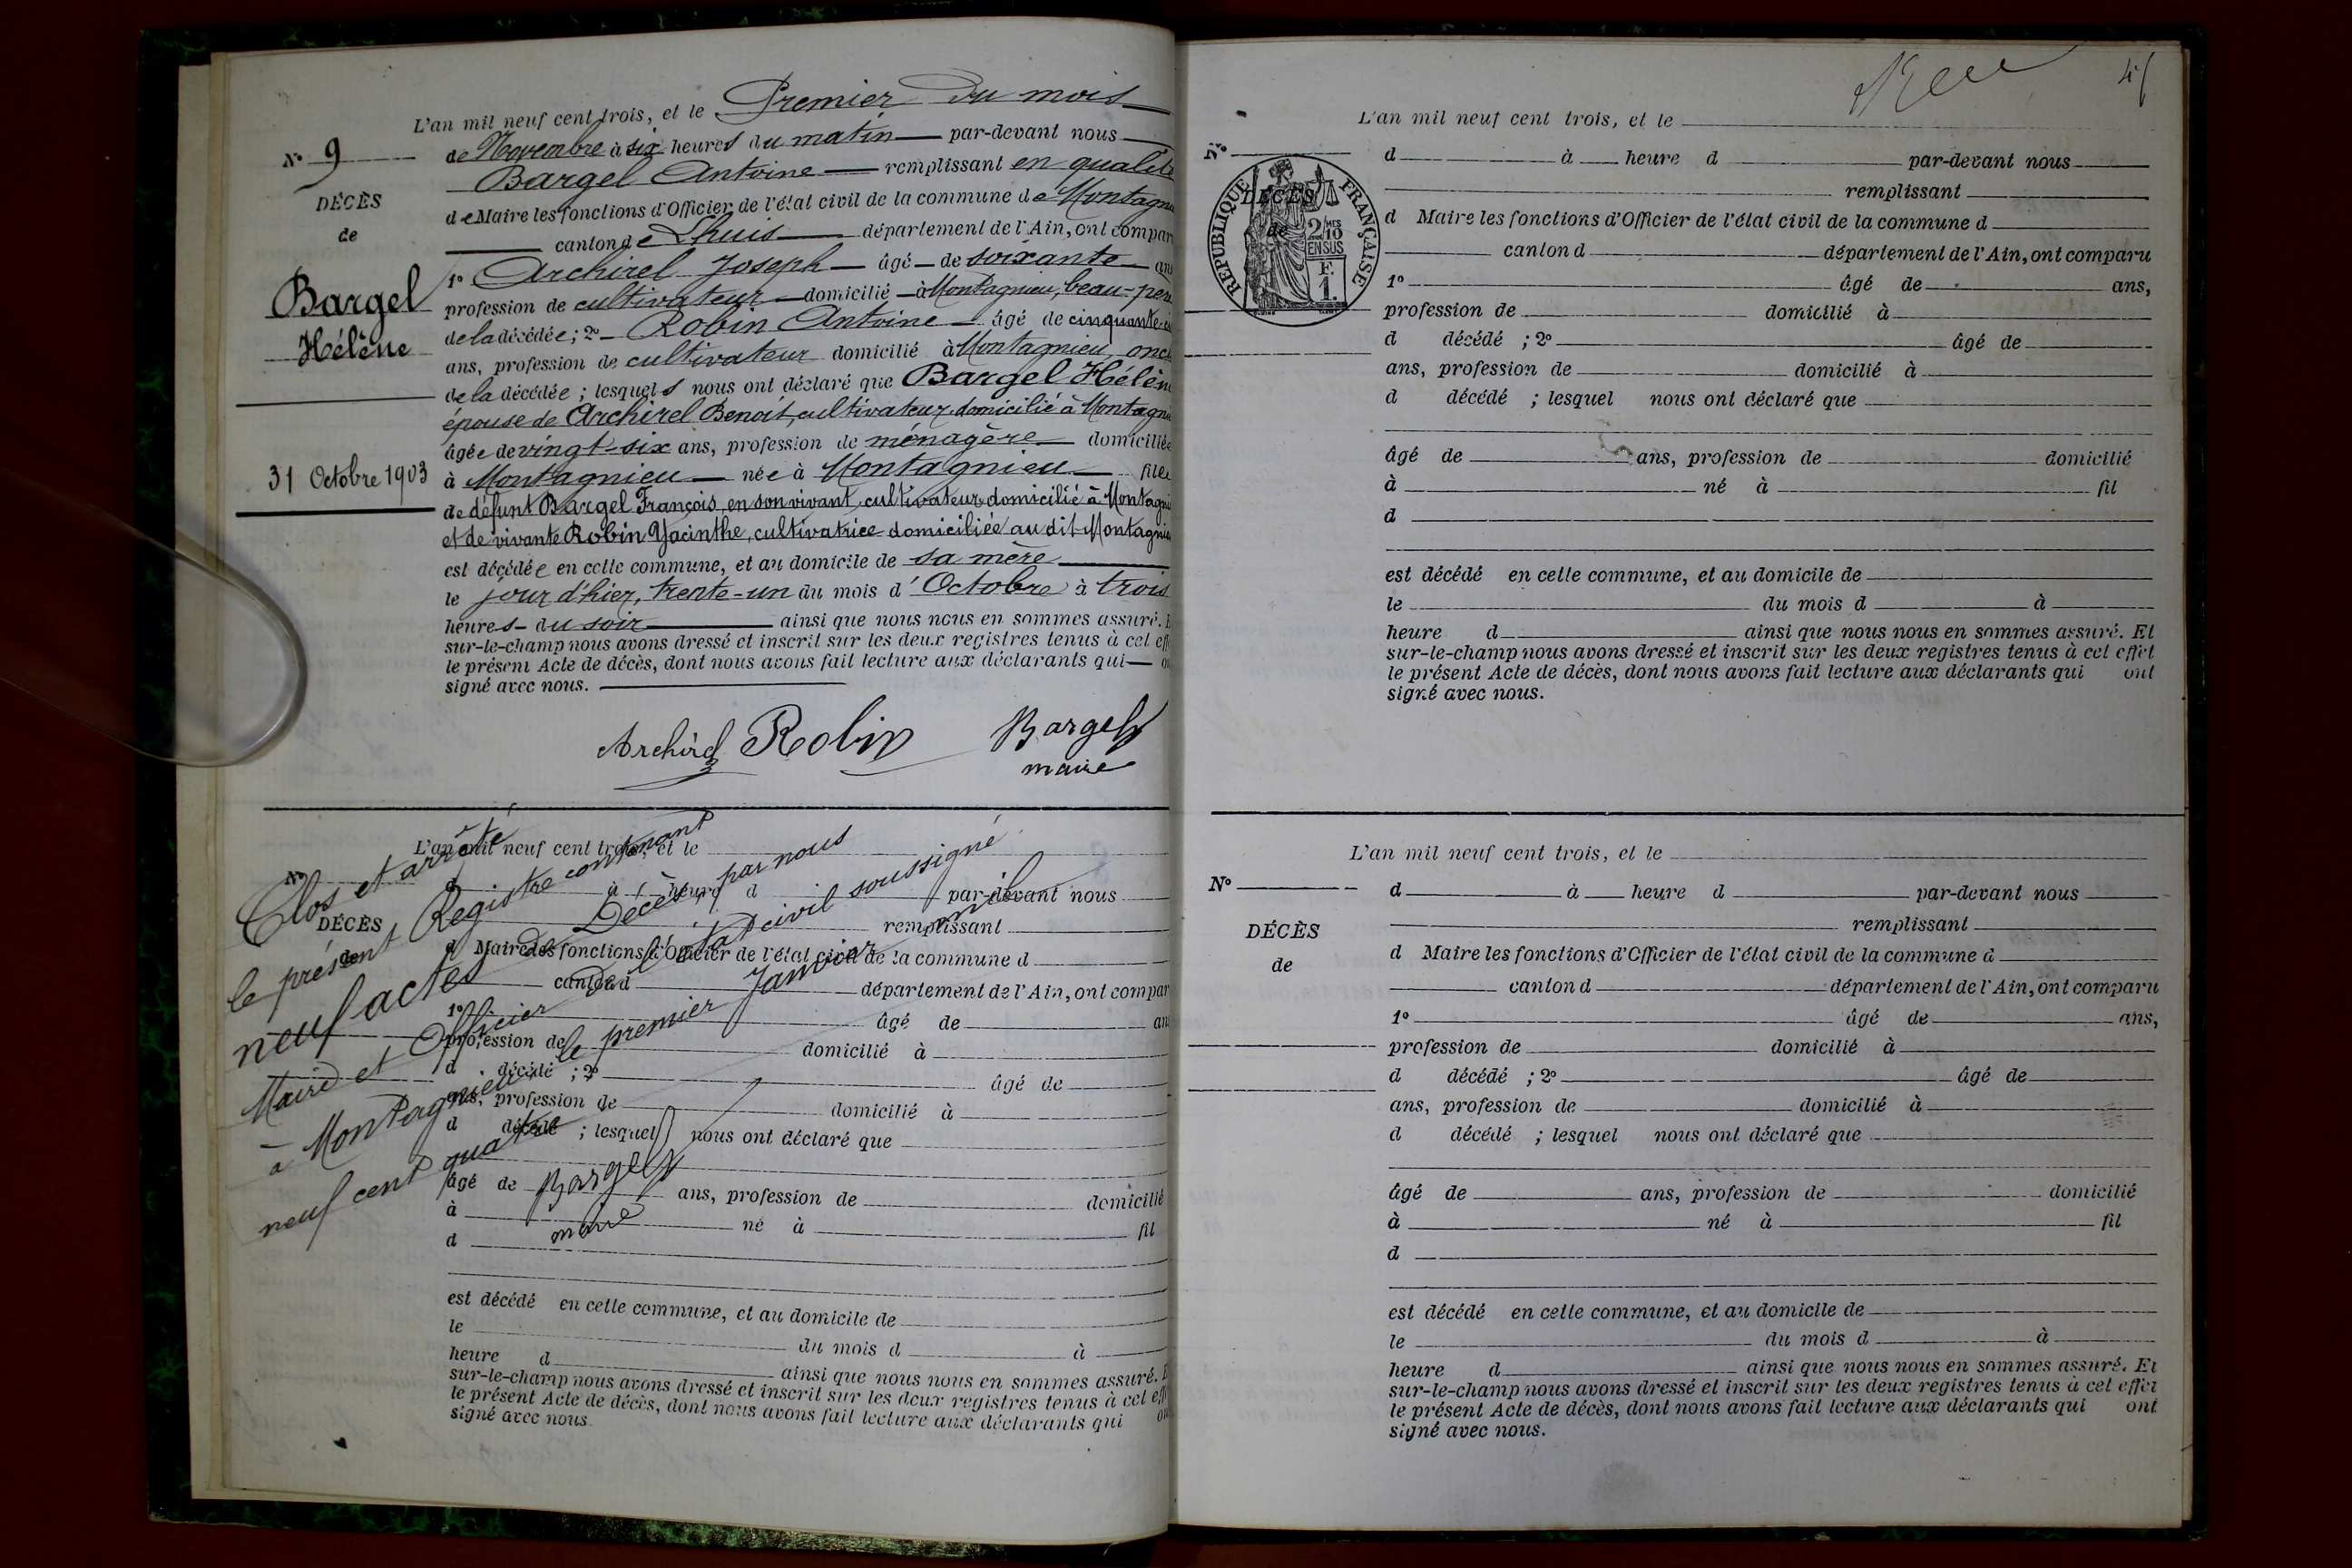 L'an mil neuf cent trois, et le Premier du mois
N° 9
de Novembre à six heures du matin par-devant nous
Bargel Antoine remplissant en qualité
DÉCÈS
de Maire les fonctions d'Officier de l'état civil de la commune de Montagni
de
canton de Lhuis département de l'Ain, ont compar
Bargel
Hélène
1° Archirel Joseph âgé de soixante an
profession de cultivateur domicilié à Montagnieu, beau-père
de la décédée ; 2° Robin Antoine âgé de cinquante-
ans, profession de cultivateur domicilié à Montagnieu, oncle
de la décédée ; lesquels nous ont déclaré que Bargel Hélène
épouse de Archirel Benoit, cultivateur domicilié à Montagni
âgée de vingt-six ans, profession de ménagère domiciliée
31 Octobre 1903
à Montagnieu née à Montagnieu fille
de défunt Bargel François, en son vivant cultivateur domicilié à Montagni
et de vivante Robin Yacinthe, cultivatrice domiciliée au dit Montagnieu
est décédée en cette commune, et au domicile de sa mère
le jour d'hier, trente-un du mois d'Octobre à trois
heures du soir ainsi que nous nous en sommes assuré. E
sur-le-champ nous avons dressé et inscrit sur les deux registres tenus à cet eff
le présent Acte de décès, dont nous avons fait lecture aux déclarants qui on
signé avec nous.
Archirel Robin Bargel
maire
L'an mil neuf cent trois, et le
N°
d à heure d par-devant nous
remplissant
DÉCÈS
de
d Maire les fonctions d'Officier de l'état civil de la commune d
canton d département de l'Ain, ont compar
1° âgé de an
profession de domicilié à
d décédé ; 2° âgé de
ans, profession de domicilié à
d décédé ; lesquel nous ont déclaré que
âgé de ans, profession de domicilié
à né à fil
d
est décédé en cette commune, et au domicile de
le du mois d à
heure d ainsi que nous nous en sommes assuré. E
sur-le-champ nous avons dressé et inscrit sur les deux registres tenus à cet eff
le présent Acte de décès, dont nous avons fait lecture aux déclarants qui on
signé avec nous
Clos et arrêté
le présent Registre contenant
neuf actes de Décès, par nous
Maire et Officier de l'état civil soussigné
à Montagnieu, le premier Janvier mil
neuf cent quatre
Bargel
maire
L'an mil neuf cent trois, et le
N°
d à heure d par-devant nous
remplissant
DÉCÈS
de
RÉPUBLIQUE FRANÇAISE
2/10 MES
EN SUS
F.
1.
d Maire les fonctions d'Officier de l'état civil de la commune d
canton d département de l'Ain, ont comparu
1° âgé de ans,
profession de domicilié à
d décédé ; 2° âgé de
ans, profession de domicilié à
d décédé ; lesquel nous ont déclaré que
âgé de ans, profession de domicilié
à né à fil
d
est décédé en cette commune, et au domicile de
le du mois d à
heure d ainsi que nous nous en sommes assuré. Et
sur-le-champ nous avons dressé et inscrit sur les deux registres tenus à cet effet
le présent Acte de décès, dont nous avons fait lecture aux déclarants qui ont
signé avec nous.
L'an mil neuf cent trois, et le
N°
d à heure d par-devant nous
remplissant
DÉCÈS
de
d Maire les fonctions d'Officier de l'état civil de la commune d
canton d département de l'Ain, ont comparu
1° âgé de ans,
profession de domicilié à
d décédé ; 2° âgé de
ans, profession de domicilié à
d décédé ; lesquel nous ont déclaré que
âgé de ans, profession de domicilié
à né à fil
d
est décédé en cette commune, et au domicile de
le du mois d à
heure d ainsi que nous nous en sommes assuré. Et
sur-le-champ nous avons dressé et inscrit sur les deux registres tenus à cet effet
le présent Acte de décès, dont nous avons fait lecture aux déclarants qui ont
signé avec nous.